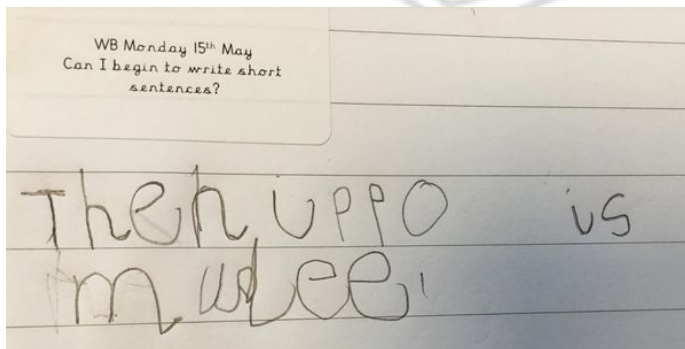 WB Monday 15th May
Can I begin to write short
sentences?
The hippo is
mudee.